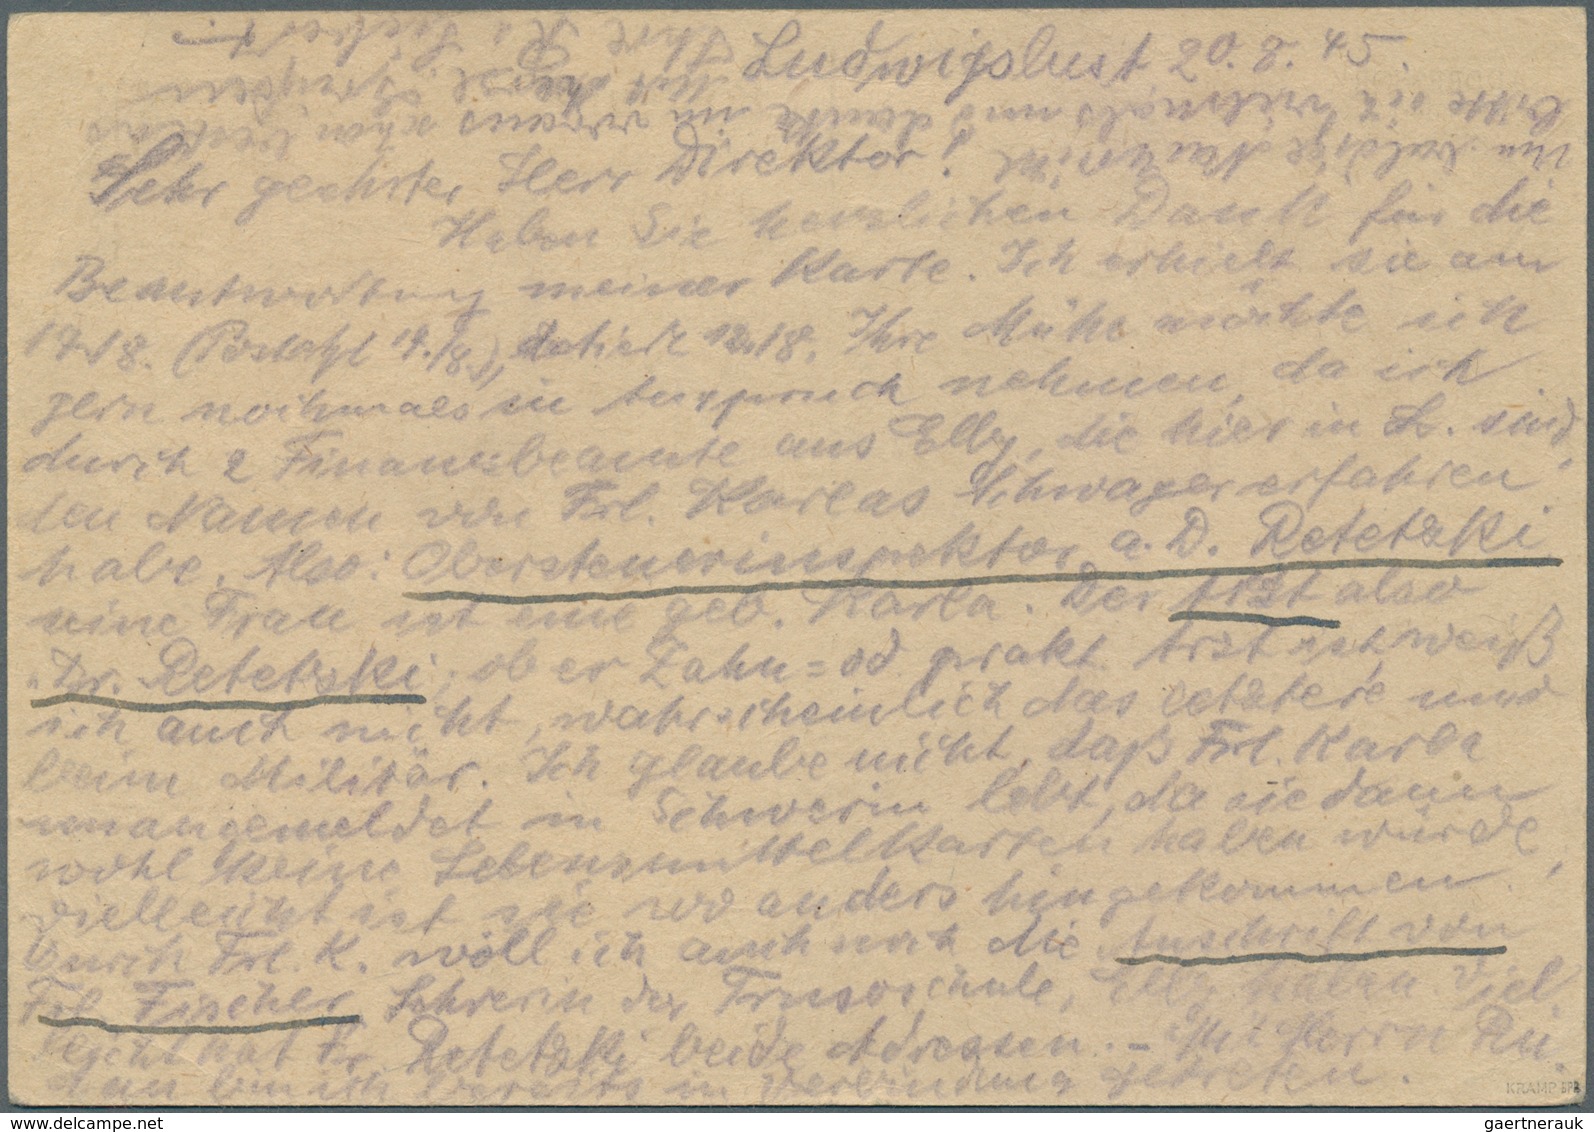 Ludwigslust 20.8.45.
Sehr geehrter Herr Direktor!
Haben Sie herzlichen Dank für die
Beantwortung meiner Karte. Ich erhielt sie am
(Poststpl 14./8.), datiert 12./8. Ihre Mühe möchte ich
gern nochmals in Anspruch nehmen, da ich
durch 2 Finanzbeamte aus Elbg, die hier in L. sind,
den Namen von Frl. Karlas Schwager erfahren
habe. Also: Obersteuerinspektor a. D. Retetzki
seine Frau ist eine geb. Karla. Der Arzt also
Dr. Retetzki, ob er Zahn= od prakt. Arzt ist, weiß
ich auch nicht, wahrscheinlich das letztere und
beim Militär. Ich glaube nicht, daß Frl. Karla
unangemeldet in Schwerin lebt, da sie dann
wohl keine Lebensmittelkarten haben würde,
vielleicht ist sie wo anders hingekommen.
Durch Frl. K. woll ich auch noch die Anschrift von
Frl. Fischer Lehrerin der Trusoschule, Elbg haben. Viel
leicht hat Dr. Retetzki beide Adressen. – Mit Herrn Rü-
dau bin ich bereits in Verbindung getreten.
Um baldige Nachricht
bitte ich vielmals und danke im voraus schon bestens
Mit herzl. Grüßen
Ihre
KRAMP BPP
gaertnerauk